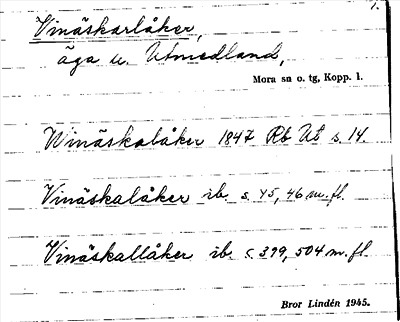 1.
Vinäskarlåker,
äga u. Utmedland,
Mora sn o. tg, Kopp. l.
Winäskalåker 1847 Rb Ut s. 14.
Vinäskalåker ib. s. 45, 46 m. fl.
Vinäskallåker ib. s. 399, 504 m. fl.
Bror Lindén 1945.